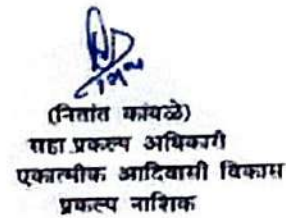 (नितांत कांबळे)
सहा.प्रकल्प अधिकारी
एकात्मीक आदिवासी विकास
प्रकल्प नाशिक